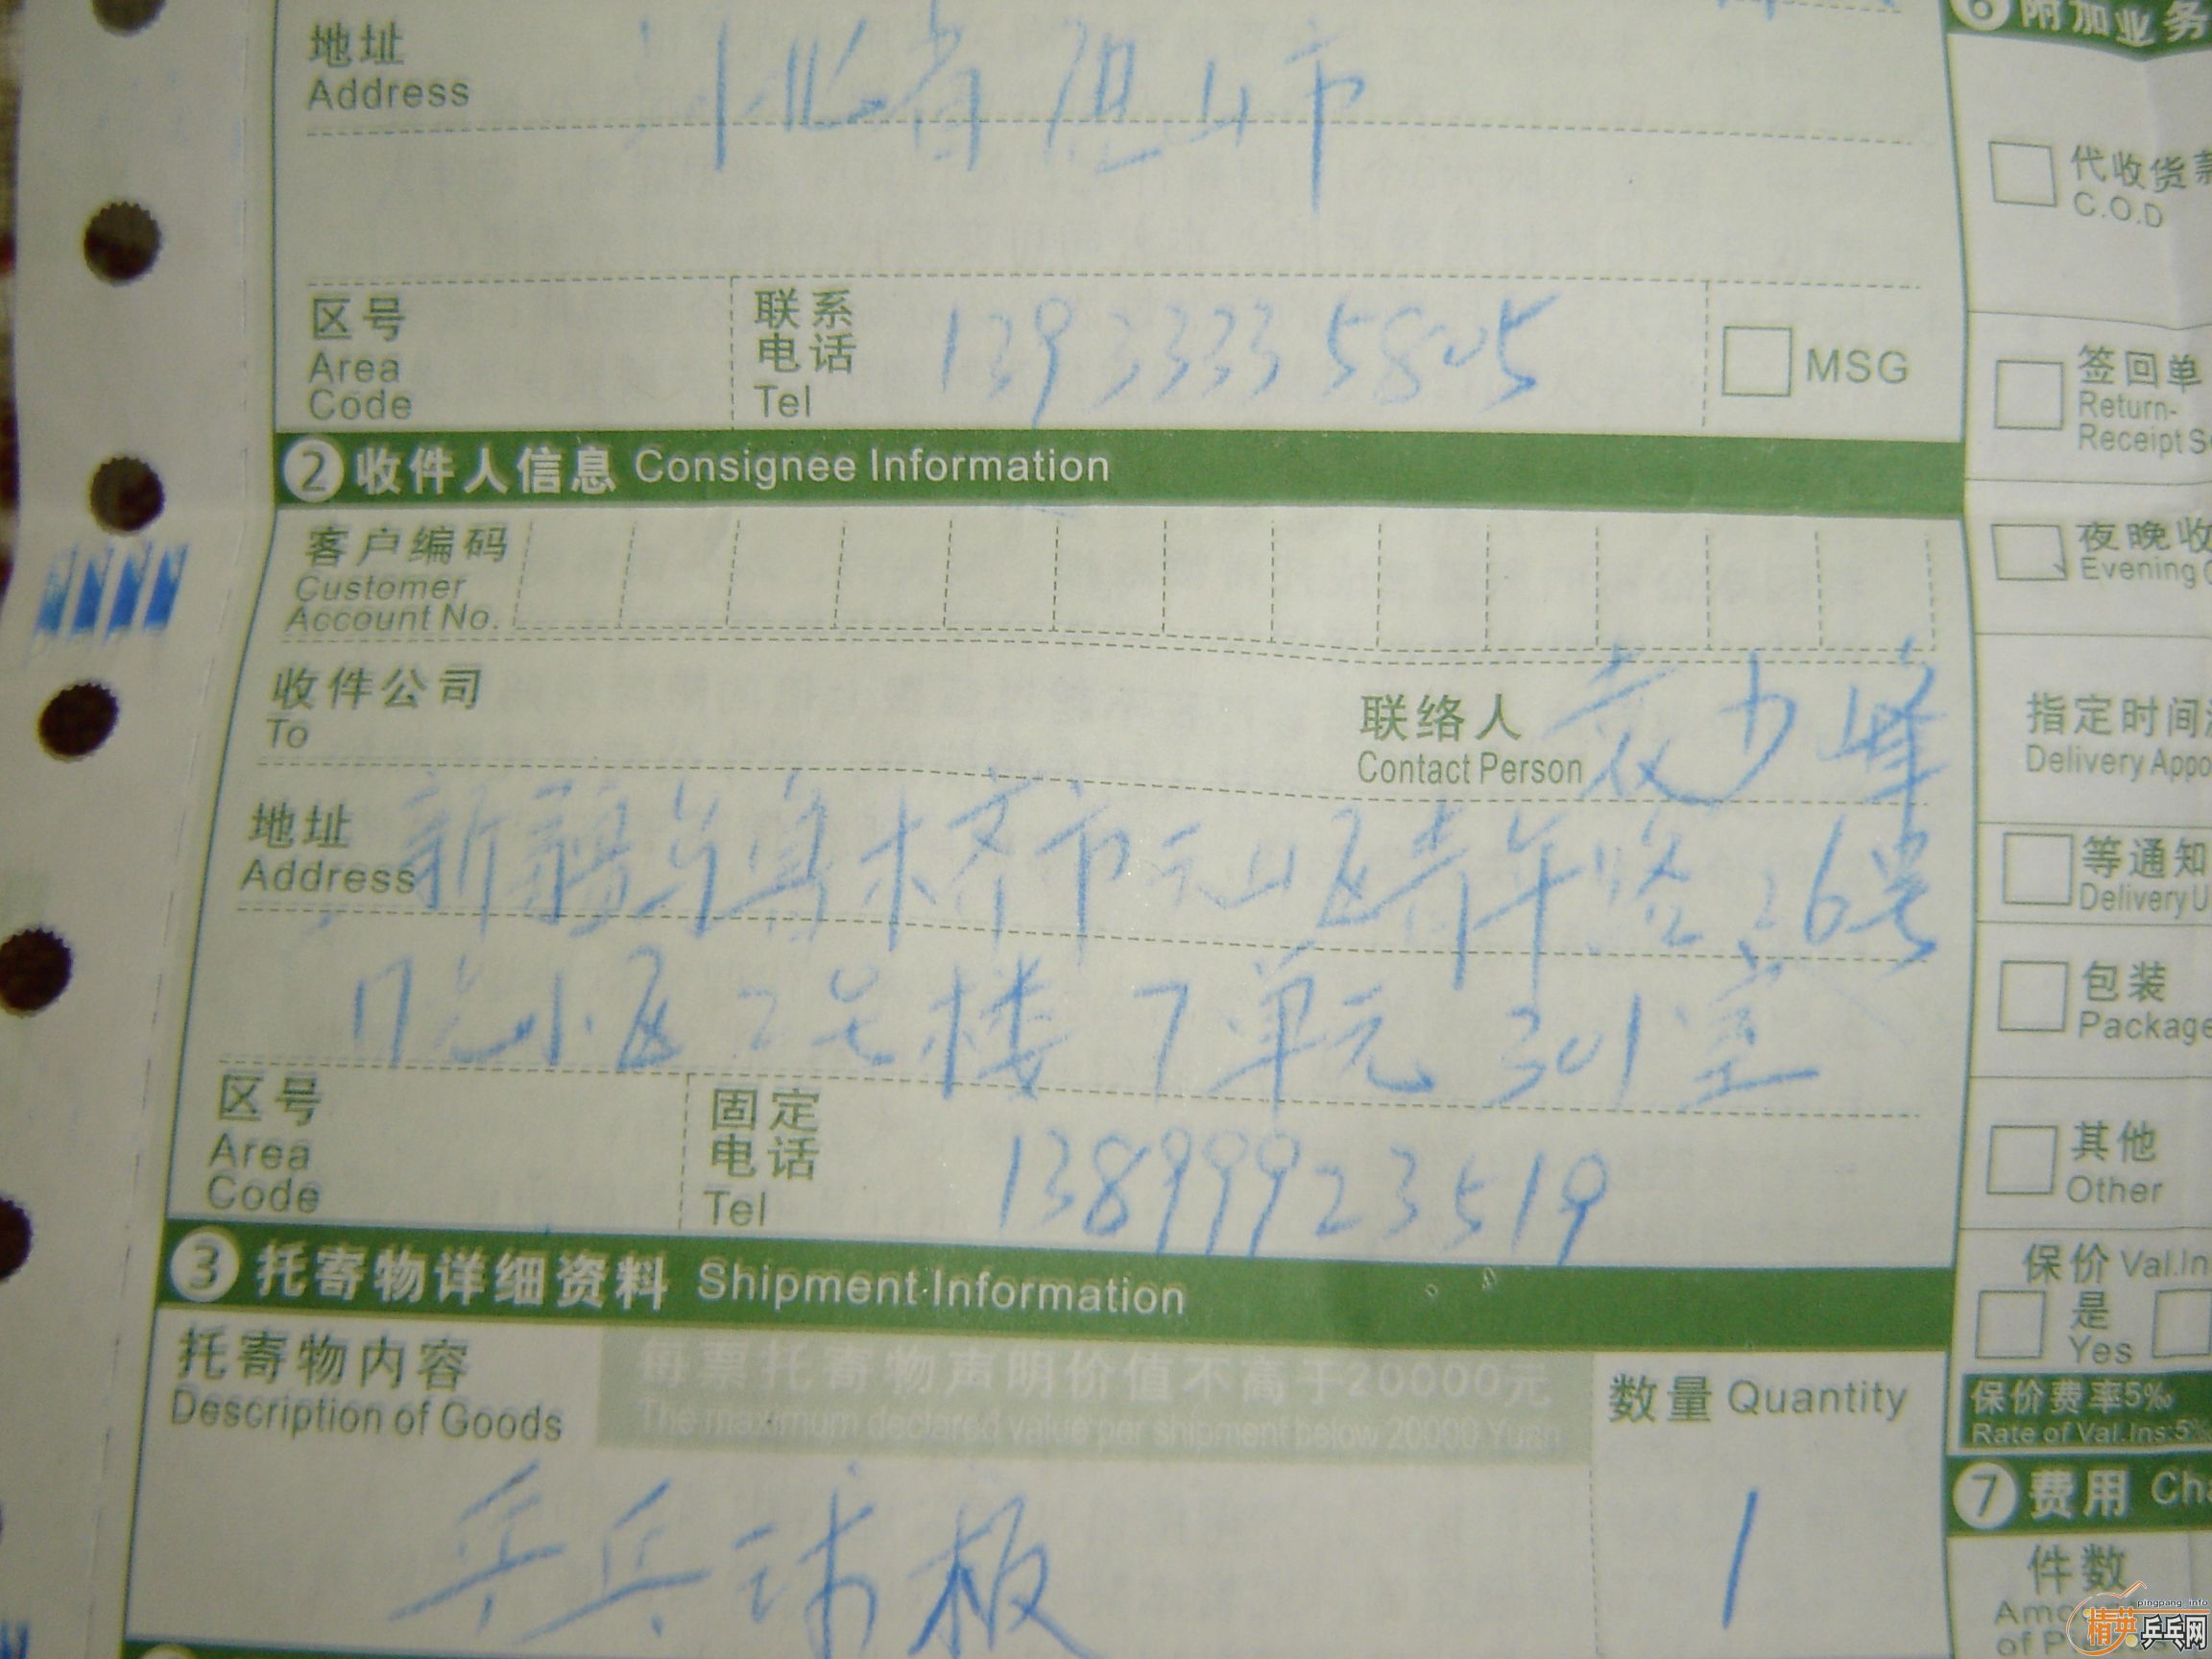 ⑥附加业务
地址
Address
河北省唐山市
代收货款
C.O.D
区号
Area
Code
联系
电话
Tel
13933335805
MSG
签回单
Return-
Receipt S
②收件人信息 Consignee Information
夜晚收
Evening
客户编码
Customer
Account No.
收件公司
To
联络人
Contact Person
袁少峰
指定时间
Delivery Appo
地址
Address
新疆乌鲁木齐市天山区青年路26号
等通知
Delivery U
小区2号楼7单元301室
包装
Package
区号
Area
Code
固定
电话
Tel
13899923519
其他
Other
③托寄物详细资料 Shipment Information
保价 Val.In
是
Yes
托寄物内容
Description of Goods
每票托寄物声明价值不高于20000元
The maximum declared value per shipment below 20000 Yuan
数量 Quantity
保价费率5‰
Rate of Val.Ins:5‰
乒乓球板
1
⑦费用 Cha
件数
Amo
of P
pingpang.info
精英乒乓网